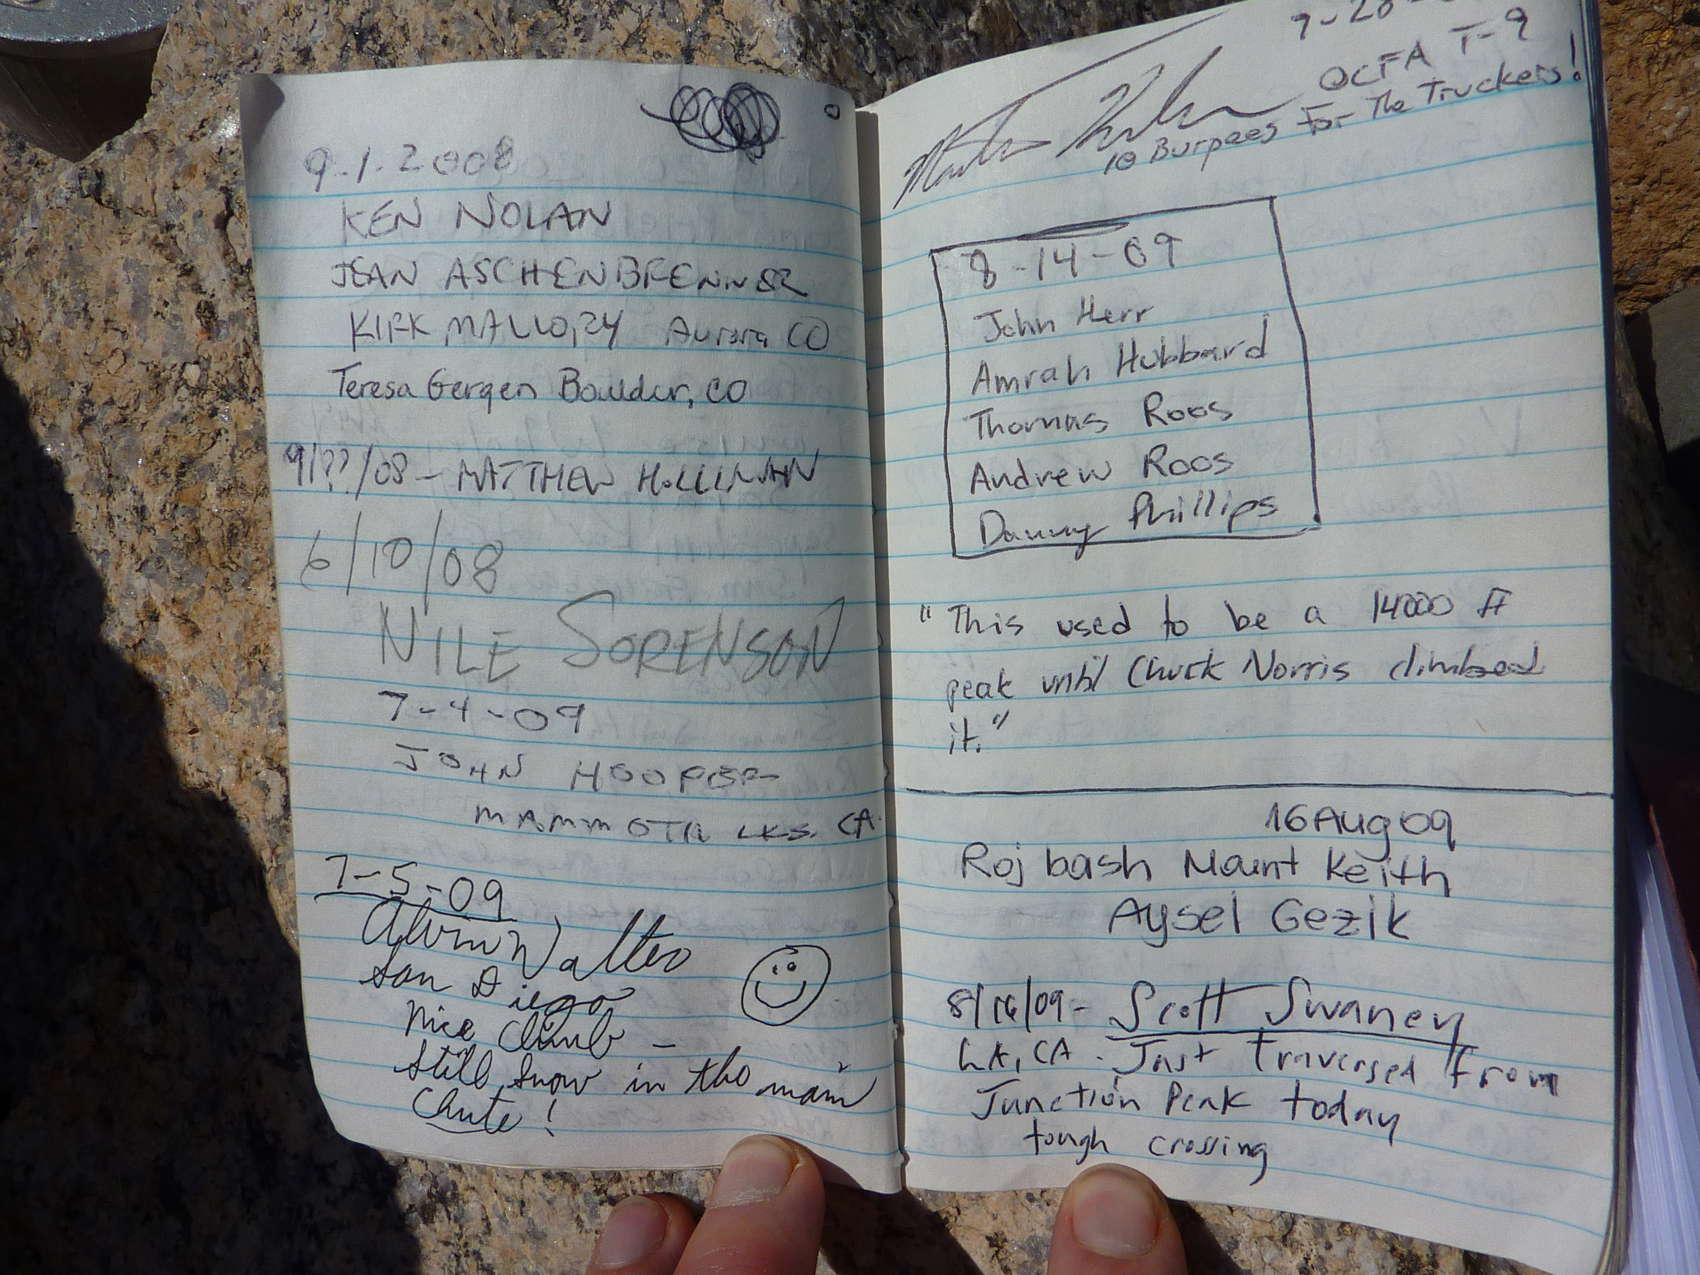 9.1.2008
KEN NOLAN
JEAN ASCHENBRENNER
KIRK MALLORY Aurora CO
Teresa Gergen Boulder, CO
9/??/08 - MATTHEW HOLLIMAN
6/10/08
NILE SORENSON
7-4-09
JOHN HOOPER
MAMMOTH LKS. CA
7-5-09
San Diego
Nice Climb -
Still snow in the main
Chute!
7-28
OCFA T-9
10 Burpees For The Truckers!
8-14-09
John Herr
Amrah Hubbard
Thomas Roos
Andrew Roos
Danny Phillips
"This used to be a 14000 ft
peak until Chuck Norris climbed
it."
16 Aug 09
Roj bash Mount Keith
Aysel Gezik
8/16/09 - Scott Swaney
LA, CA. Just traversed from
Junction Peak today
tough crossing